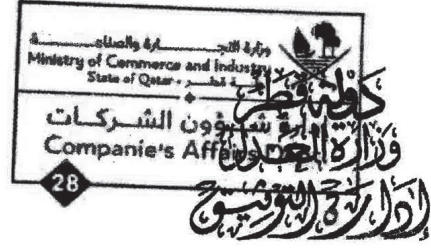 وزارة التجـــــــارة والصناعـــــــة
Ministry of Commerce and Industry
State of Qatar - دولـــة قطـــر
إدارة شـــؤون الشـــركـــات
Companie's Affairs
28
دولة قطر
وزارة العدل
إدارة التوثيق